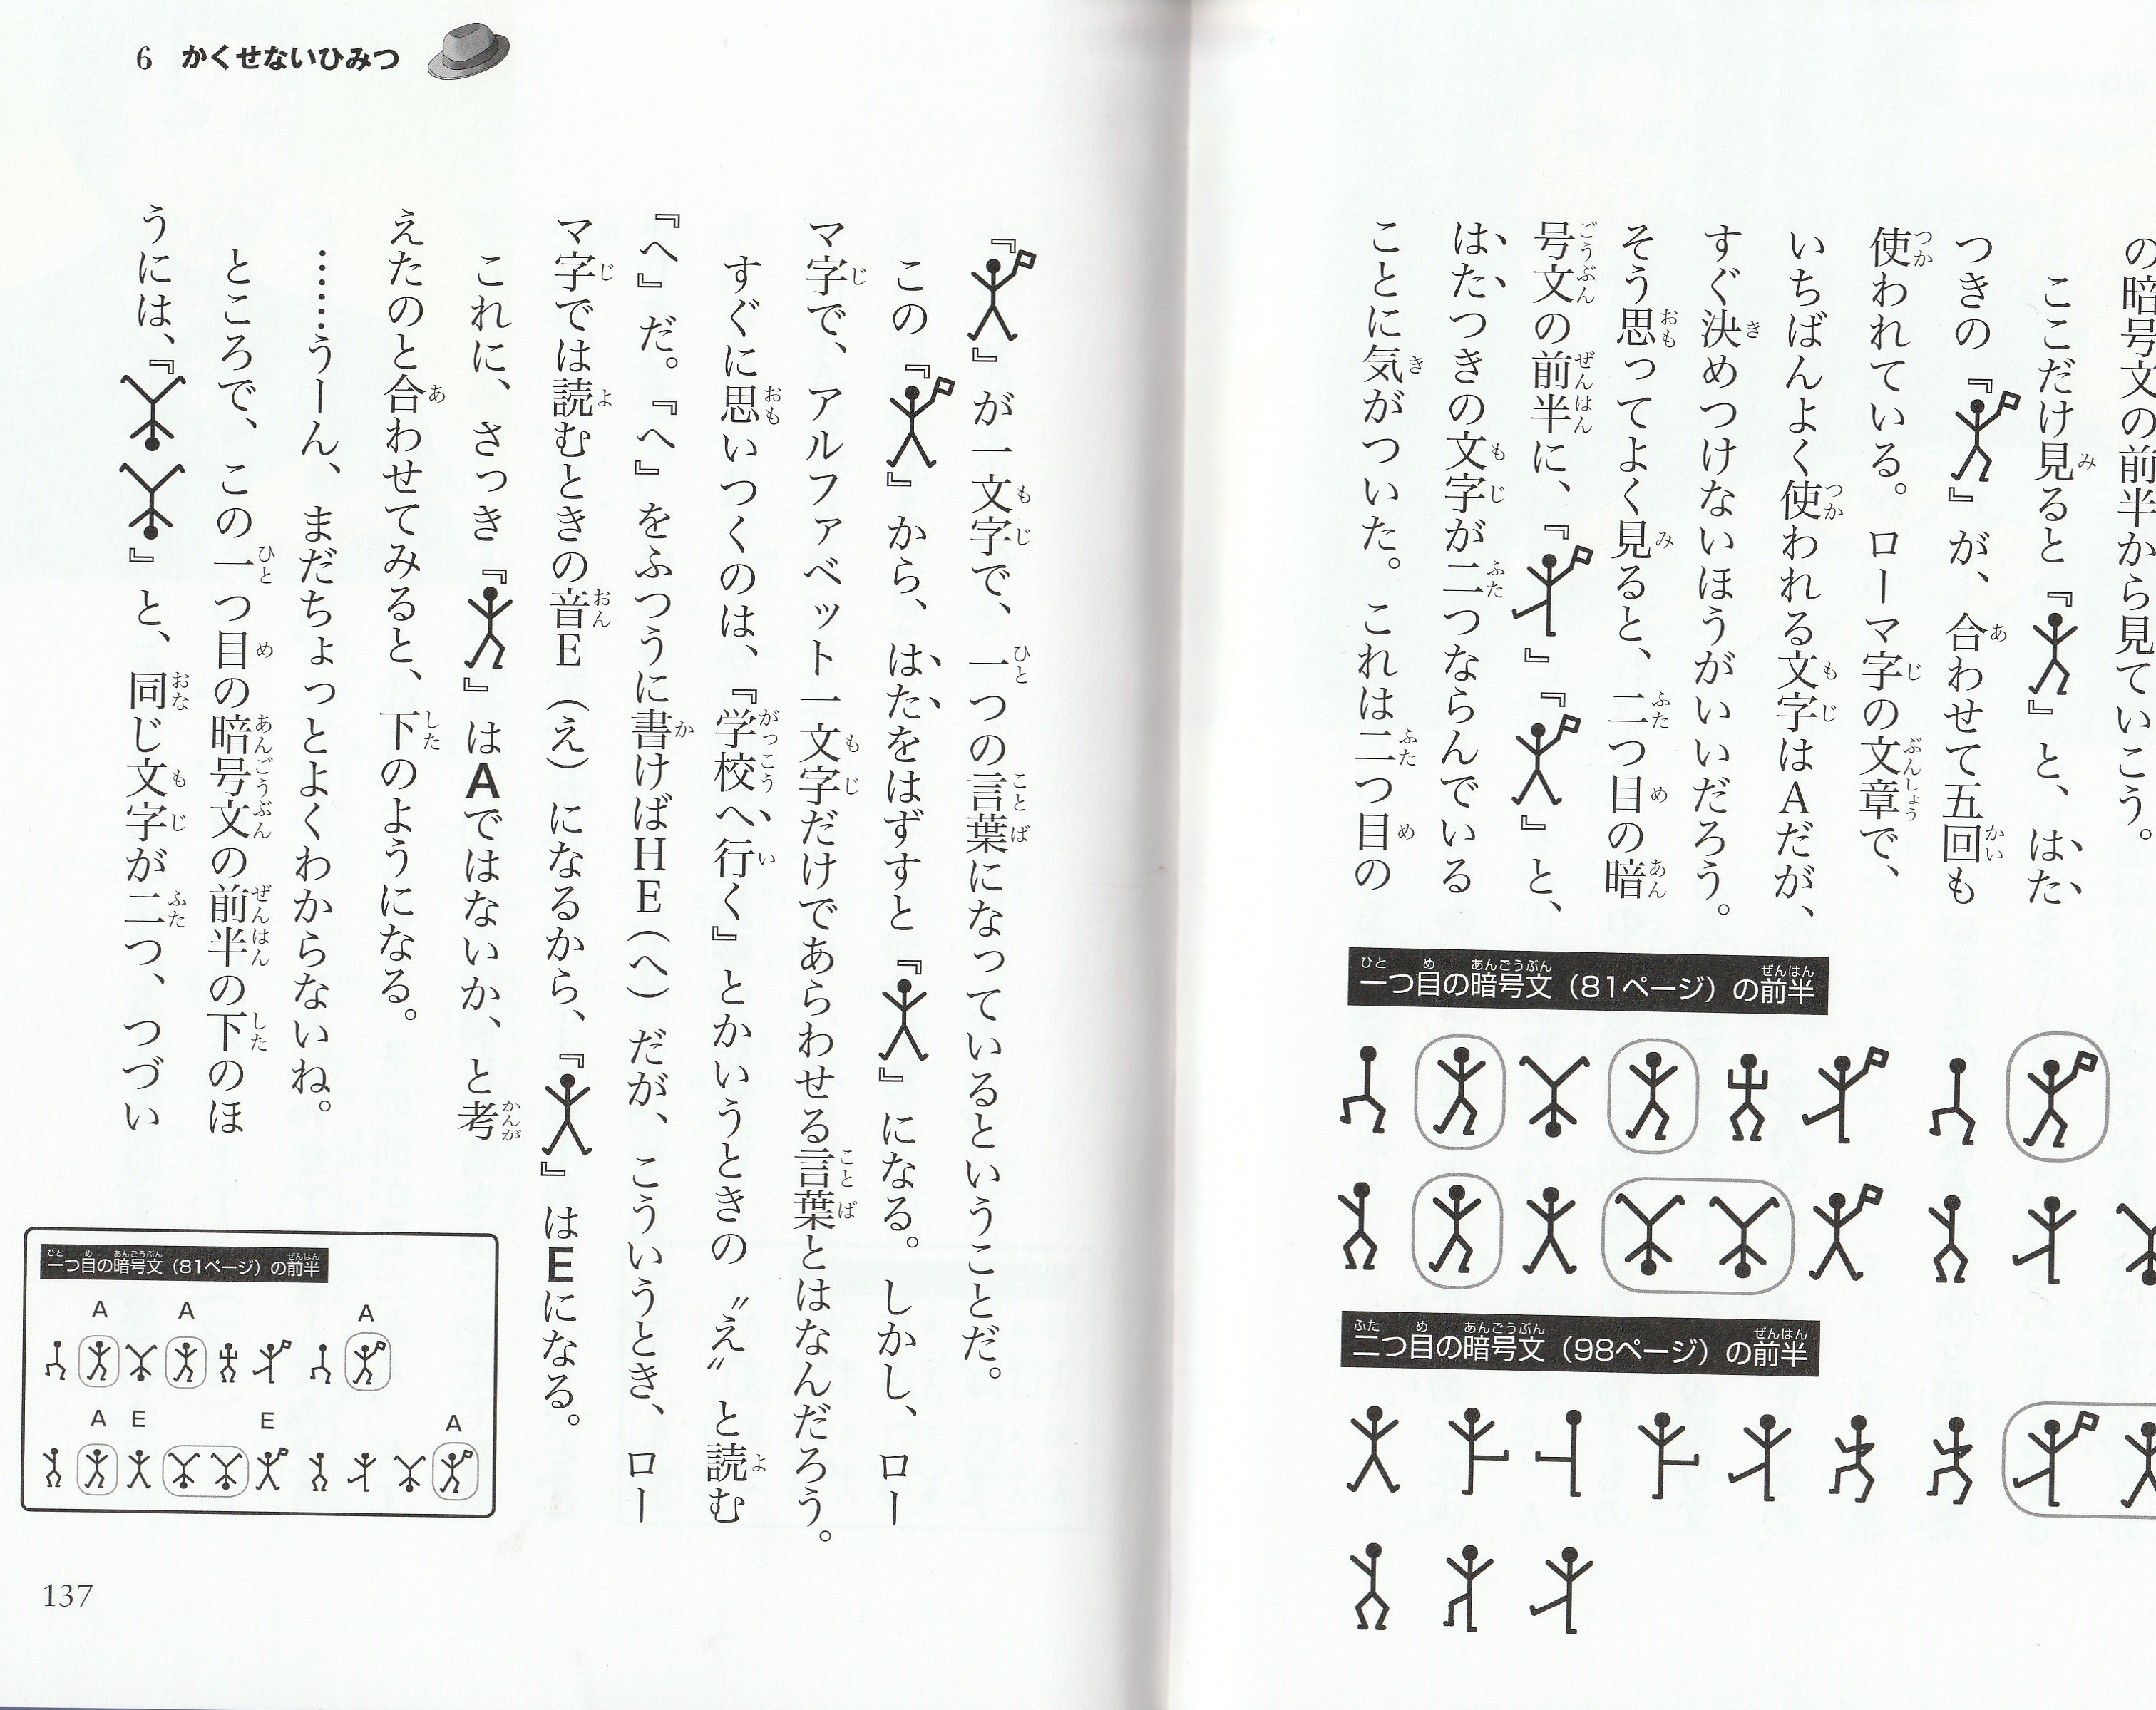 の暗号文の前半から見ていこう。
ここだけ見ると『』と、はた
つきの『』が、合わせて五回も
使われている。ローマ字の文章で、
いちばんよく使われる文字はAだが、
すぐ決めつけないほうがいいだろう。
そう思ってよく見ると、二つ目の暗
号文の前半に、『』『』と、
はたつきの文字が二つならんでいる
ことに気がついた。これは二つ目の
一つ目の暗号文（81ページ）の前半
二つ目の暗号文（98ページ）の前半
6 かくせないひみつ
『』が一文字で、一つの言葉になっているということだ。
この『』から、はたをはずすと『』になる。しかし、ロー
マ字で、アルファベット一文字だけであらわせる言葉とはなんだろう。
すぐに思いつくのは、『学校へ行く』とかいうときの〝え〟と読む
『へ』だ。『へ』をふつうに書けばHE（へ）だが、こういうとき、ロー
マ字では読むときの音E（え）になるから、『』はEになる。
これに、さっき『』はAではないか、と考
えたのと合わせてみると、下のようになる。
……うーん、まだちょっとよくわからないね。
ところで、この一つ目の暗号文の前半の下のほ
うには、『』と、同じ文字が二つ、つづい
一つ目の暗号文（81ページ）の前半
A A A
A E E A
137